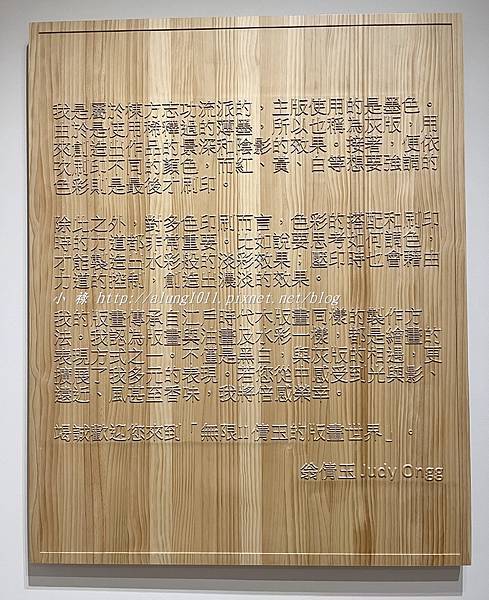 我是屬於棟方志功流派的，主版使用的是墨色。
由於是使用稀釋過的薄墨，所以也稱為灰版，用
來創造出作品的景深和陰影的效果。接著，便依
次刷印不同的顏色，而紅、黃、白等想要強調的
色彩則是最後才刷印。
除此之外，對多色印刷而言，色彩的搭配和刷印
時的力道都非常重要。比如說要思考如何調色，
才能製造出水彩般的淡彩效果，壓印時也會藉由
力道的控制，創造出濃淡的效果。
小猴 http://alung1011.pixnet.net/blog
我的版畫傳承自江戶時代木版畫同樣的製作方
法。我認為版畫與油畫及水彩一樣，都是繪畫的
表現方式之一。不屬黑白，與灰版的相遇，更
擴展了我多元的表現。若您從中感受到光與影、
遠近、風甚至香味，我將倍感榮幸。
竭誠歡迎您來到「無限 倩玉的版畫世界」。
翁倩玉 Judy Ongg